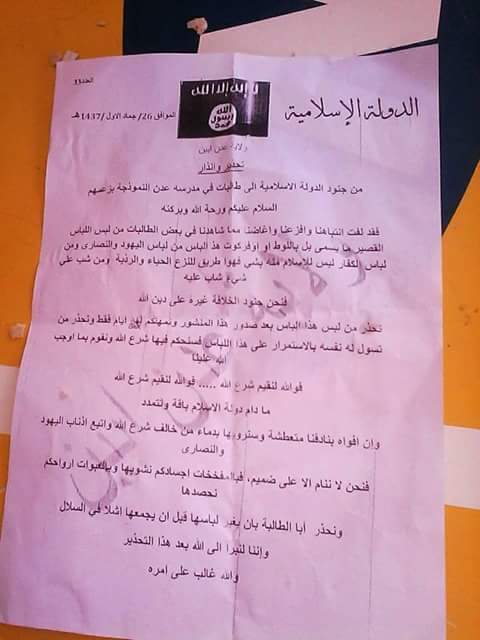 العدد 33
لا إله إلا الله
الله
رسول
محمد
الدولة الإسلامية
الموافق 26/جماد الاول /1437هـ
ولاية عدن ابين
تحذير وانذار
من جنود الدولة الاسلامية الى طالبات في مدرسه عدن النموذجة بزعمهم
السلام عليكم ورحة الله وبركته
فقد لفت انتباهنا وافزعنا واغاضنا مما شاهدنا في بعض الطالبات من لبس اللباس
القصير ما يسمى بل باللوط او اوفركوت هذ الباس من لباس اليهود والنصارى ومن
لباس الكفار ليس للاسلام مثه بشي فهوا طريق للنزع الحياء والرذية ومن شب علي
شيء شاب عليه
فنحن جنود الخلافة غيره على دين الله
نحذر من لبس هذا الباس بعد صدور هذا المنشور ونمهتكم لهن ايام فقط ونحذر من
تسول له نفسه بالاستمرار على هذا اللباس فسنحكم فيها شرع الله ونقوم بما اوجب
الله علينا
فوالله لنقيم شرع الله ..... فوالله لنقيم شرع الله
ما دام دولة الاسلام باقة وتتمدد
وان افواه بنادفنا متعطشة وسنرويها بدماء من خالف شرع الله واتبع اذناب اليهود
والنصارى
فنحن لا ننام الا على ضميم، فبالمفخخات اجسادكم نشويها وبالعبوات ارواحكم
نحصدها
ونحذر أبا الطالبة بان يغير لباسها قبل ان يجمعها اشلا في السلال
وإننا لنبرا الى الله بعد هذا التحذير
والله غالب على امره